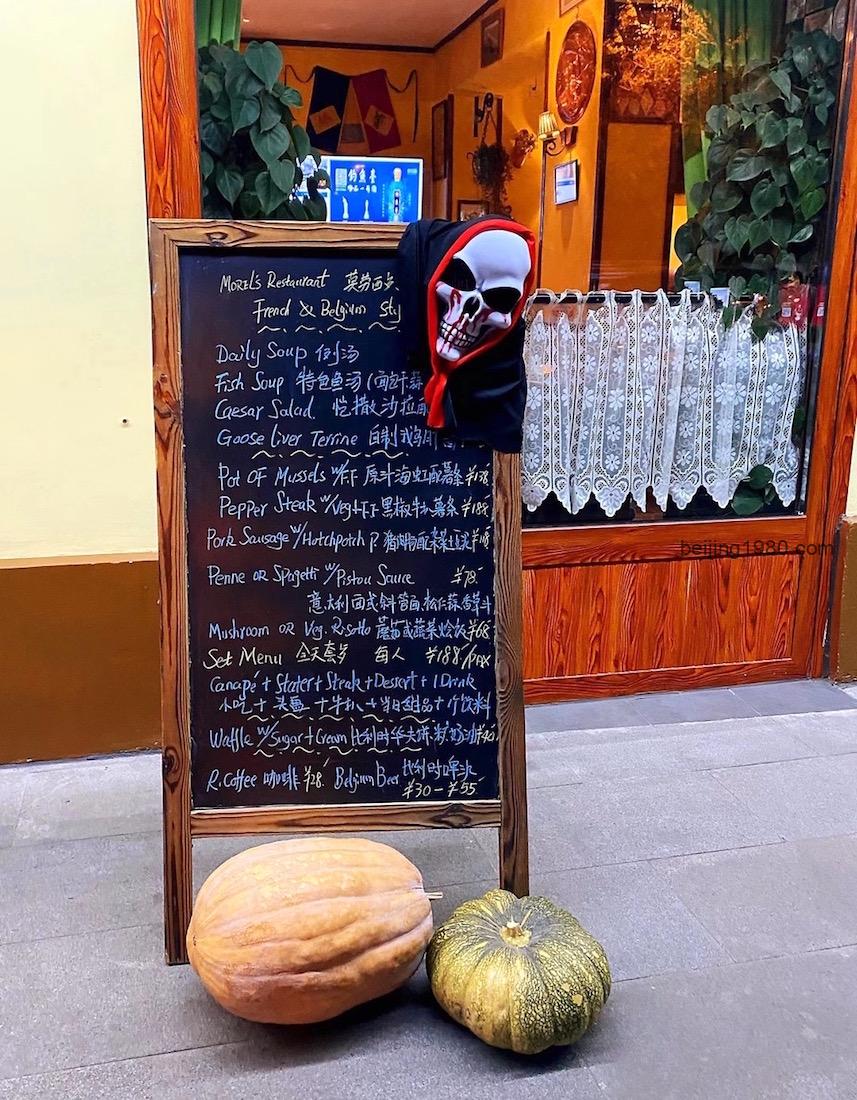 MOREL'S Restaurant 莫劳西
French & Belgium Sty
Daily Soup 例汤
Fish Soup 特色鱼汤 (面包干蒜
Caesar Salad 恺撒沙拉
Goose liver Terrine 自制鹅肝
Pot OF Mussels w/F.F 原汁海虹配薯条 ¥178
Pepper Steak w/Veg+F.F 黑椒牛扒薯条 ¥188
Pork Sausage w/Hotchpotch P. 猪肉肠配杂菜土豆 ¥118
Penne OR Spagetti w/Pistou Sauce ¥78
意大利面或斜管面,松仁蒜香草汁
Mushroom OR Veg. Risotto 蘑菇或蔬菜烩饭 ¥68
Set Menu 全天套歺 每人 ¥188/pax
Canapé + Stater + Steak + Dessert + 1 Drink
小吃 + 头盘 + 牛扒 + 当日甜品 + 1个饮料
Waffle w/Sugar + Cream 比利时华夫饼,糖奶油 ¥40
R. Coffee 咖啡 ¥28. Belgium Beer 比利时啤酒
¥30-¥55
钓鱼台
beijing1980.com